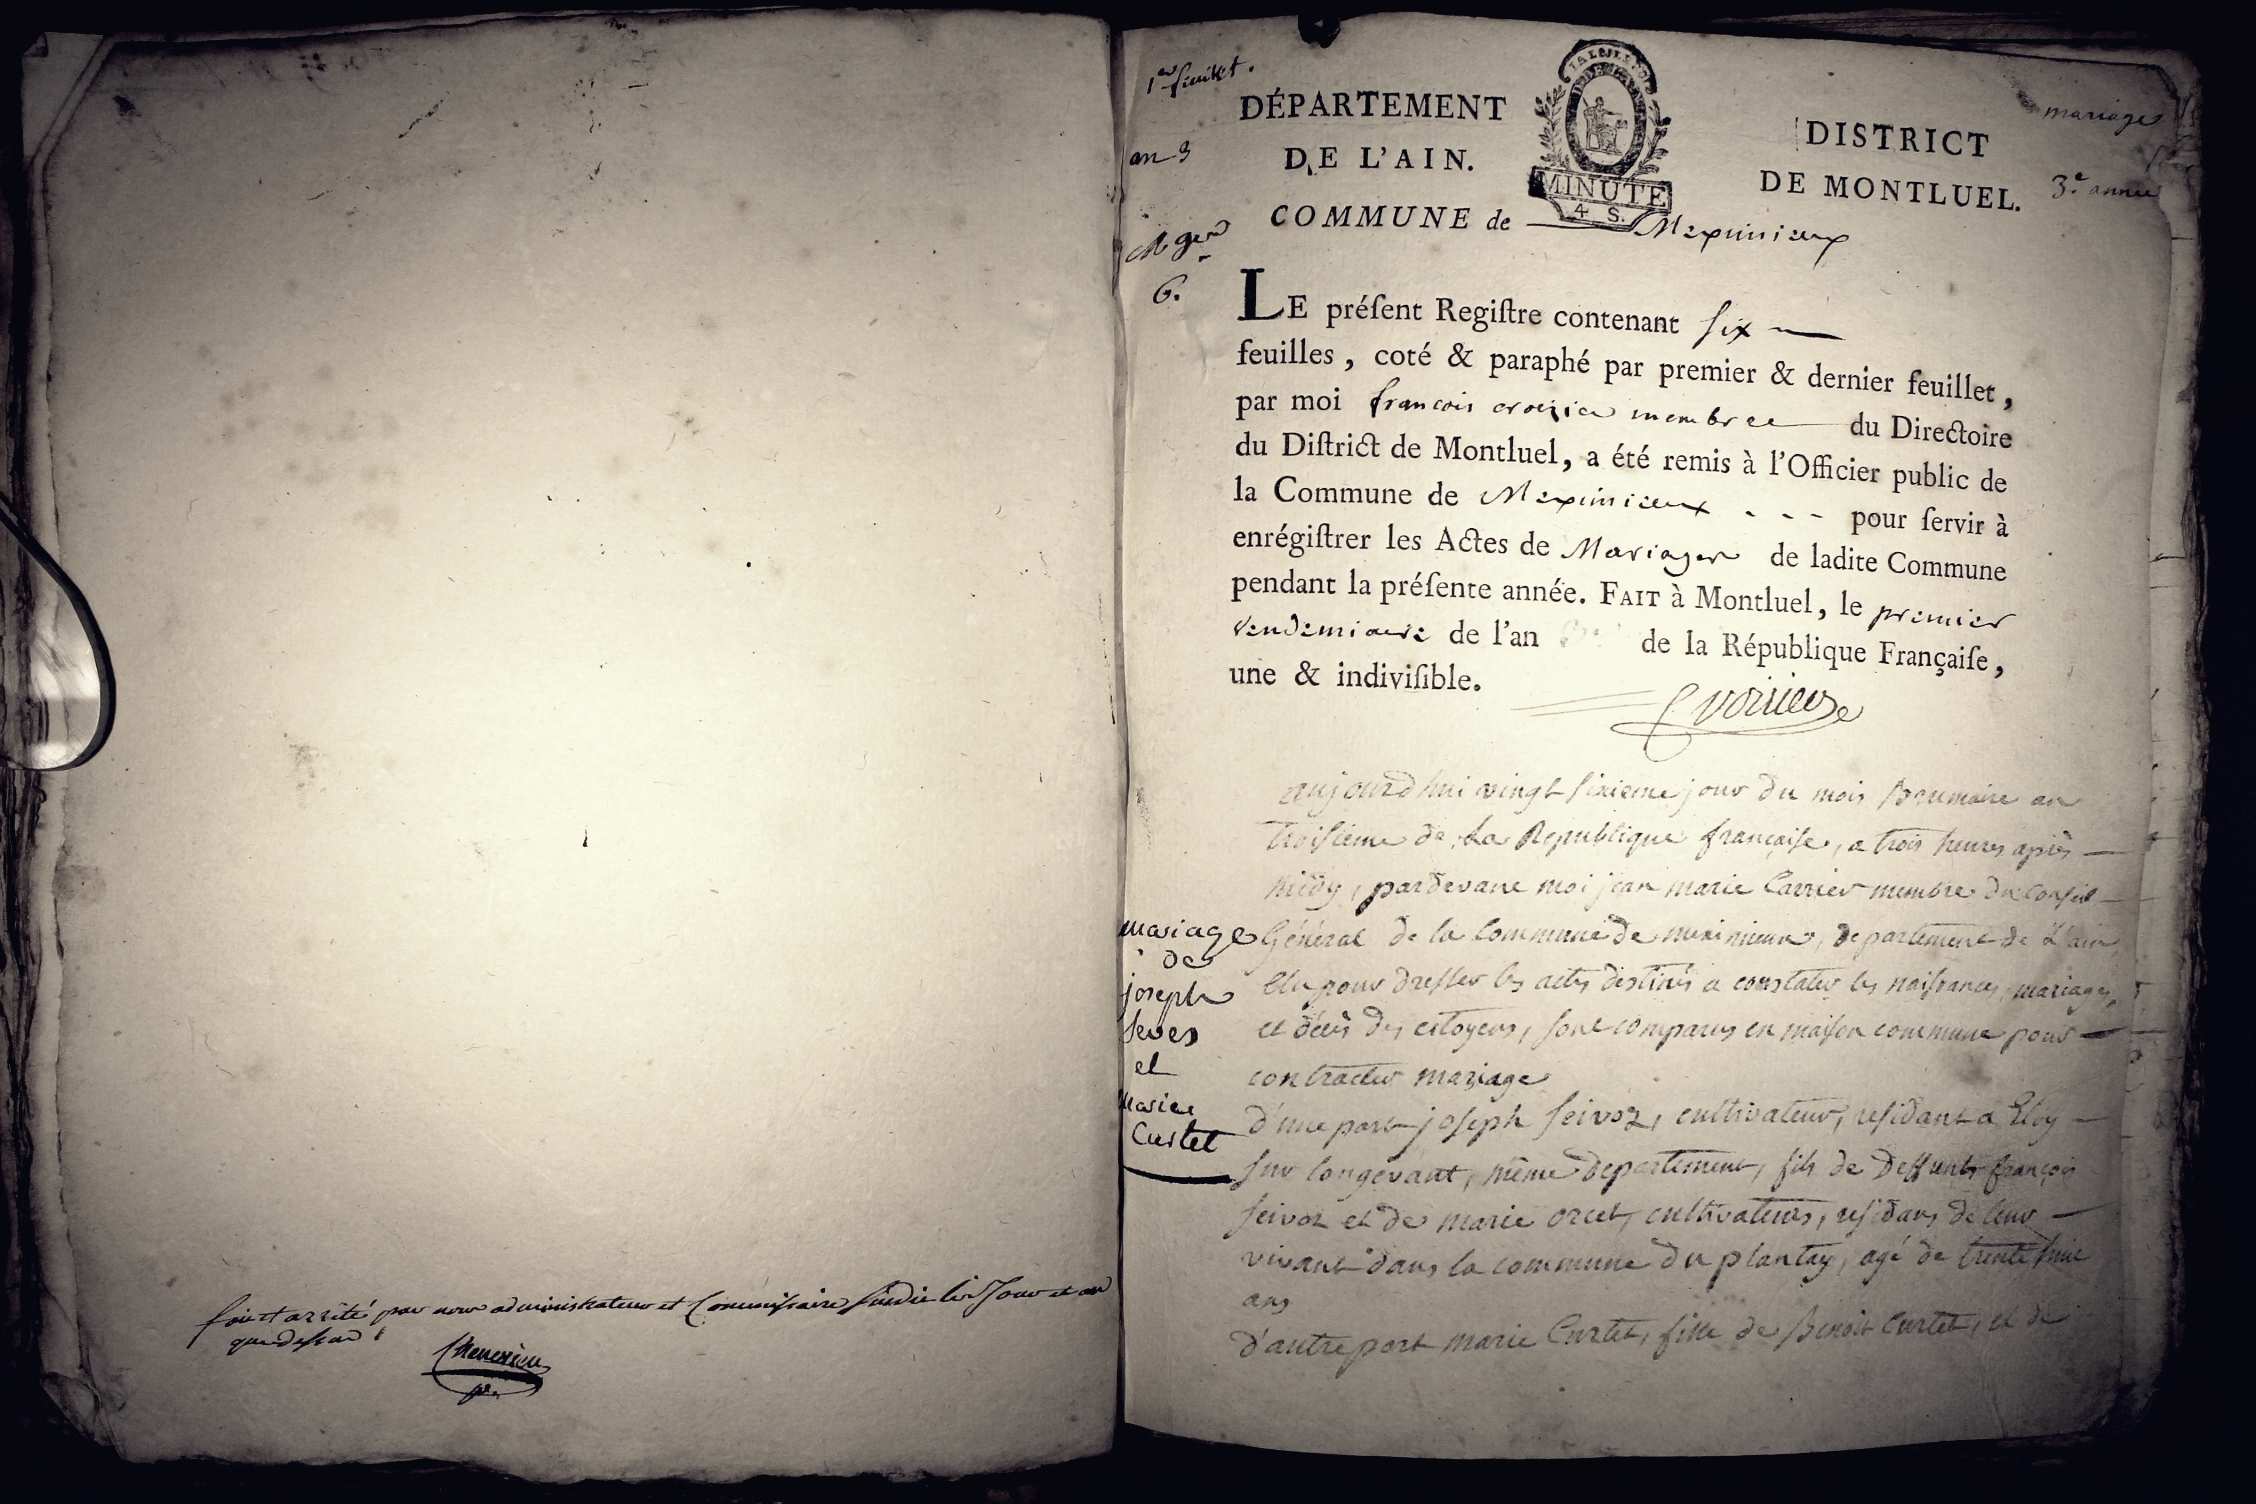 fait et arrêté par nous administrateur et Commissaire susdit les Jour et an
que dessus
1er feuillet.
an 3
6.
DÉPARTEMENT
DE L'AIN.
COMMUNE de Meximieux
LA LOI LE ROI
MINUTE
4 S.
DISTRICT
DE MONTLUEL.
mariage
3e. année
LE préſent Regiſtre contenant ſix
feuilles, coté & paraphé par premier & dernier feuillet,
par moi françois croizier membre du Directoire
du Diſtrict de Montluel, a été remis à l'Officier public de
la Commune de Meximieux - - - pour ſervir à
enrégiſtrer les Actes de Mariages de ladite Commune
pendant la préſente année. FAIT à Montluel, le premier
vendemiaire de l'an de la République Françaiſe,
une & indiviſible.
aujourdhui vingt ſixieme jour du mois Brumaire an
troiſieme de La Republique françaiſe, a trois heures après
midy, pardevant moi jean marie Carrier membre du Conſeil
Général de la Commune de meximieux, departement de L'ain,
Elu pour dreſſer les actes destinés a constater les naiſsances, mariages,
et décès des citoyens, ſont comparus en maiſon commune pour
contracter mariage
mariage
de
joseph
Seves
et
Marie
Curtet
d'une part joſeph ſeivoz, cultivateur, reſidant a Eloy
ſur longevant, même departement, fils de Deffunts françois
ſeivoz et de marie orcet, cultivateurs, reſidans de leur
vivant dans la commune du plantay, agé de trente huit
ans
d'autre part marie Curtet, fille de Benoit Curtet, et de